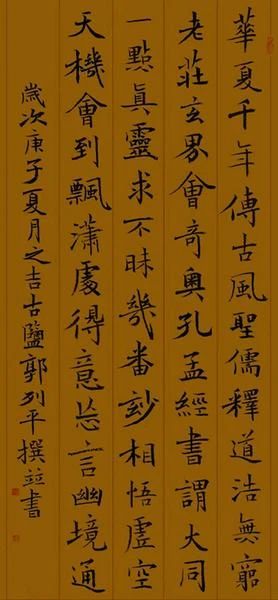 華夏千年傳古風聖儒釋道浩無窮
老莊玄界會奇奧孔孟經書謂大同
一點真靈求不昧幾番妙相悟虛空
天機會到飄瀟處得意忘言幽境通
歲次庚子夏月之吉古鹽郭列平撰並書